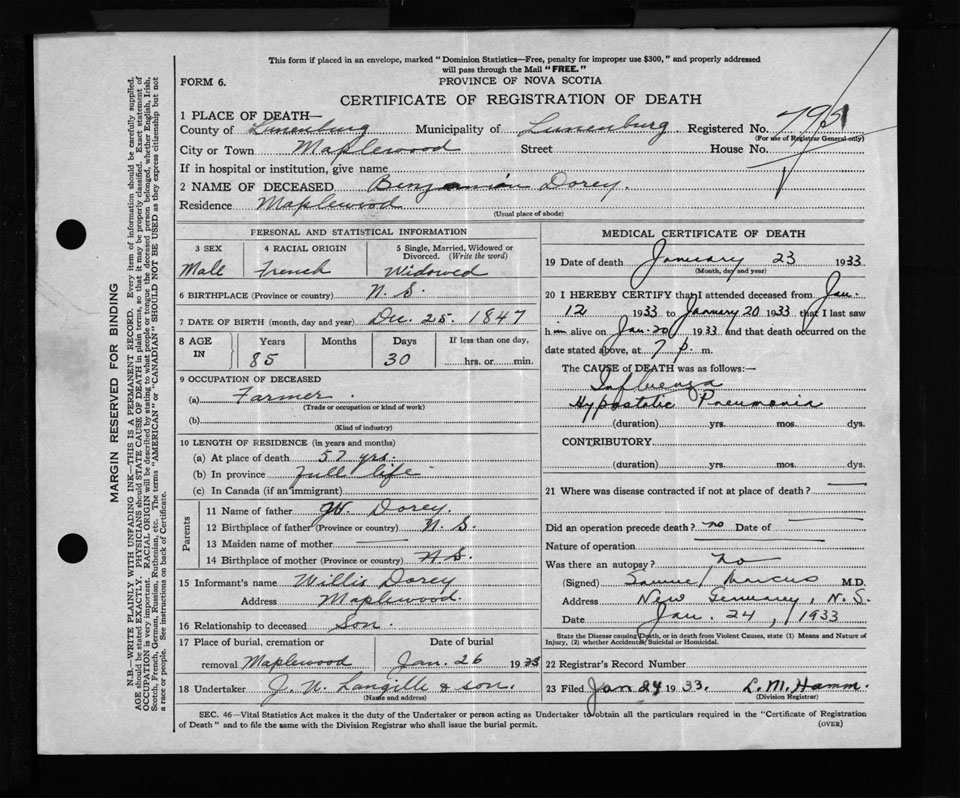 This form if placed in an envelope, marked "Dominion Statistics—Free, penalty for improper use $300," and properly addressed
will pass through the Mail "FREE."
FORM 6.
PROVINCE OF NOVA SCOTIA
CERTIFICATE OF REGISTRATION OF DEATH
1 PLACE OF DEATH—
County of Lunenburg Municipality of Lunenburg Registered No.
(For use of Registrar General only)
City or Town Maplewood Street House No.
If in hospital or institution, give name
2 NAME OF DECEASED Benjamin Dorey.
Residence Maplewood
(Usual place of abode)
PERSONAL AND STATISTICAL INFORMATION
3 SEX 4 RACIAL ORIGIN 5 Single, Married, Widowed or
Divorced. (Write the word)
Male French Widowed
6 BIRTHPLACE (Province or country) N. S.
7 DATE OF BIRTH (month, day and year) Dec. 25. 1847
8 AGE IN Years Months Days If less than one day,
85 30 hrs. or min.
9 OCCUPATION OF DECEASED
(a) Farmer.
(Trade or occupation or kind of work)
(b)
(Kind of industry)
10 LENGTH OF RESIDENCE (in years and months)
(a) At place of death 57 yrs.
(b) In province full life
(c) In Canada (if an immigrant)
Parents
11 Name of father W. Dorey.
12 Birthplace of father (Province or country) N. S.
13 Maiden name of mother
14 Birthplace of mother (Province or country) N.S.
15 Informant's name Willis Dorey
Address Maplewood.
16 Relationship to deceased Son.
17 Place of burial, cremation or Date of burial
removal Maplewood Jan. 26 1933
18 Undertaker J. N. Langille & son.
(Name and address)
MEDICAL CERTIFICATE OF DEATH
19 Date of death January 23 1933
(Month, day and year)
20 I HEREBY CERTIFY that I attended deceased from Jan.
12 1933 to January 20 1933 that I last saw
him alive on Jan. 20 1933 and that death occurred on the
date stated above, at 7 p. m.
The CAUSE of DEATH was as follows:—
Influenza
Hypostatic Pneumonia
(duration) yrs. mos. dys.
CONTRIBUTORY.
(duration) yrs. mos. dys.
21 Where was disease contracted if not at place of death?
Did an operation precede death? no Date of
Nature of operation
Was there an autopsy? no
(Signed) Samuel Marcus M.D.
Address New Germany, N.S.
Date Jan. 24, 1933
State the Disease causing Death, or in death from Violent Causes, state (1) Means and Nature of
Injury, (2) whether Accidental, Suicidal or Homicidal.
22 Registrar's Record Number
23 Filed Jan 24 1933. L. M. Hamm.
(Division Registrar)
SEC. 46—Vital Statistics Act makes it the duty of the Undertaker or person acting as Undertaker to obtain all the particulars required in the "Certificate of Registration
of Death" and to file the same with the Division Registrar who shall issue the burial permit.
(OVER)
MARGIN RESERVED FOR BINDING
N.B.—WRITE PLAINLY WITH UNFADING INK—THIS IS A PERMANENT RECORD. Every item of information should be carefully supplied.
AGE should be stated EXACTLY. PHYSICIANS should STATE CAUSE OF DEATH in plain terms, so that it may be properly classified. Exact statement of
OCCUPATION is very important. RACIAL ORIGIN will be described by stating to what people or tongue the deceased person belonged, whether English, Irish,
Scotch, French, German, Russian, Ruthenian, etc. The terms "AMERICAN" or "CANADIAN" SHOULD NOT BE USED as they express citizenship but not
a race or people. See instructions on back of Certificate.